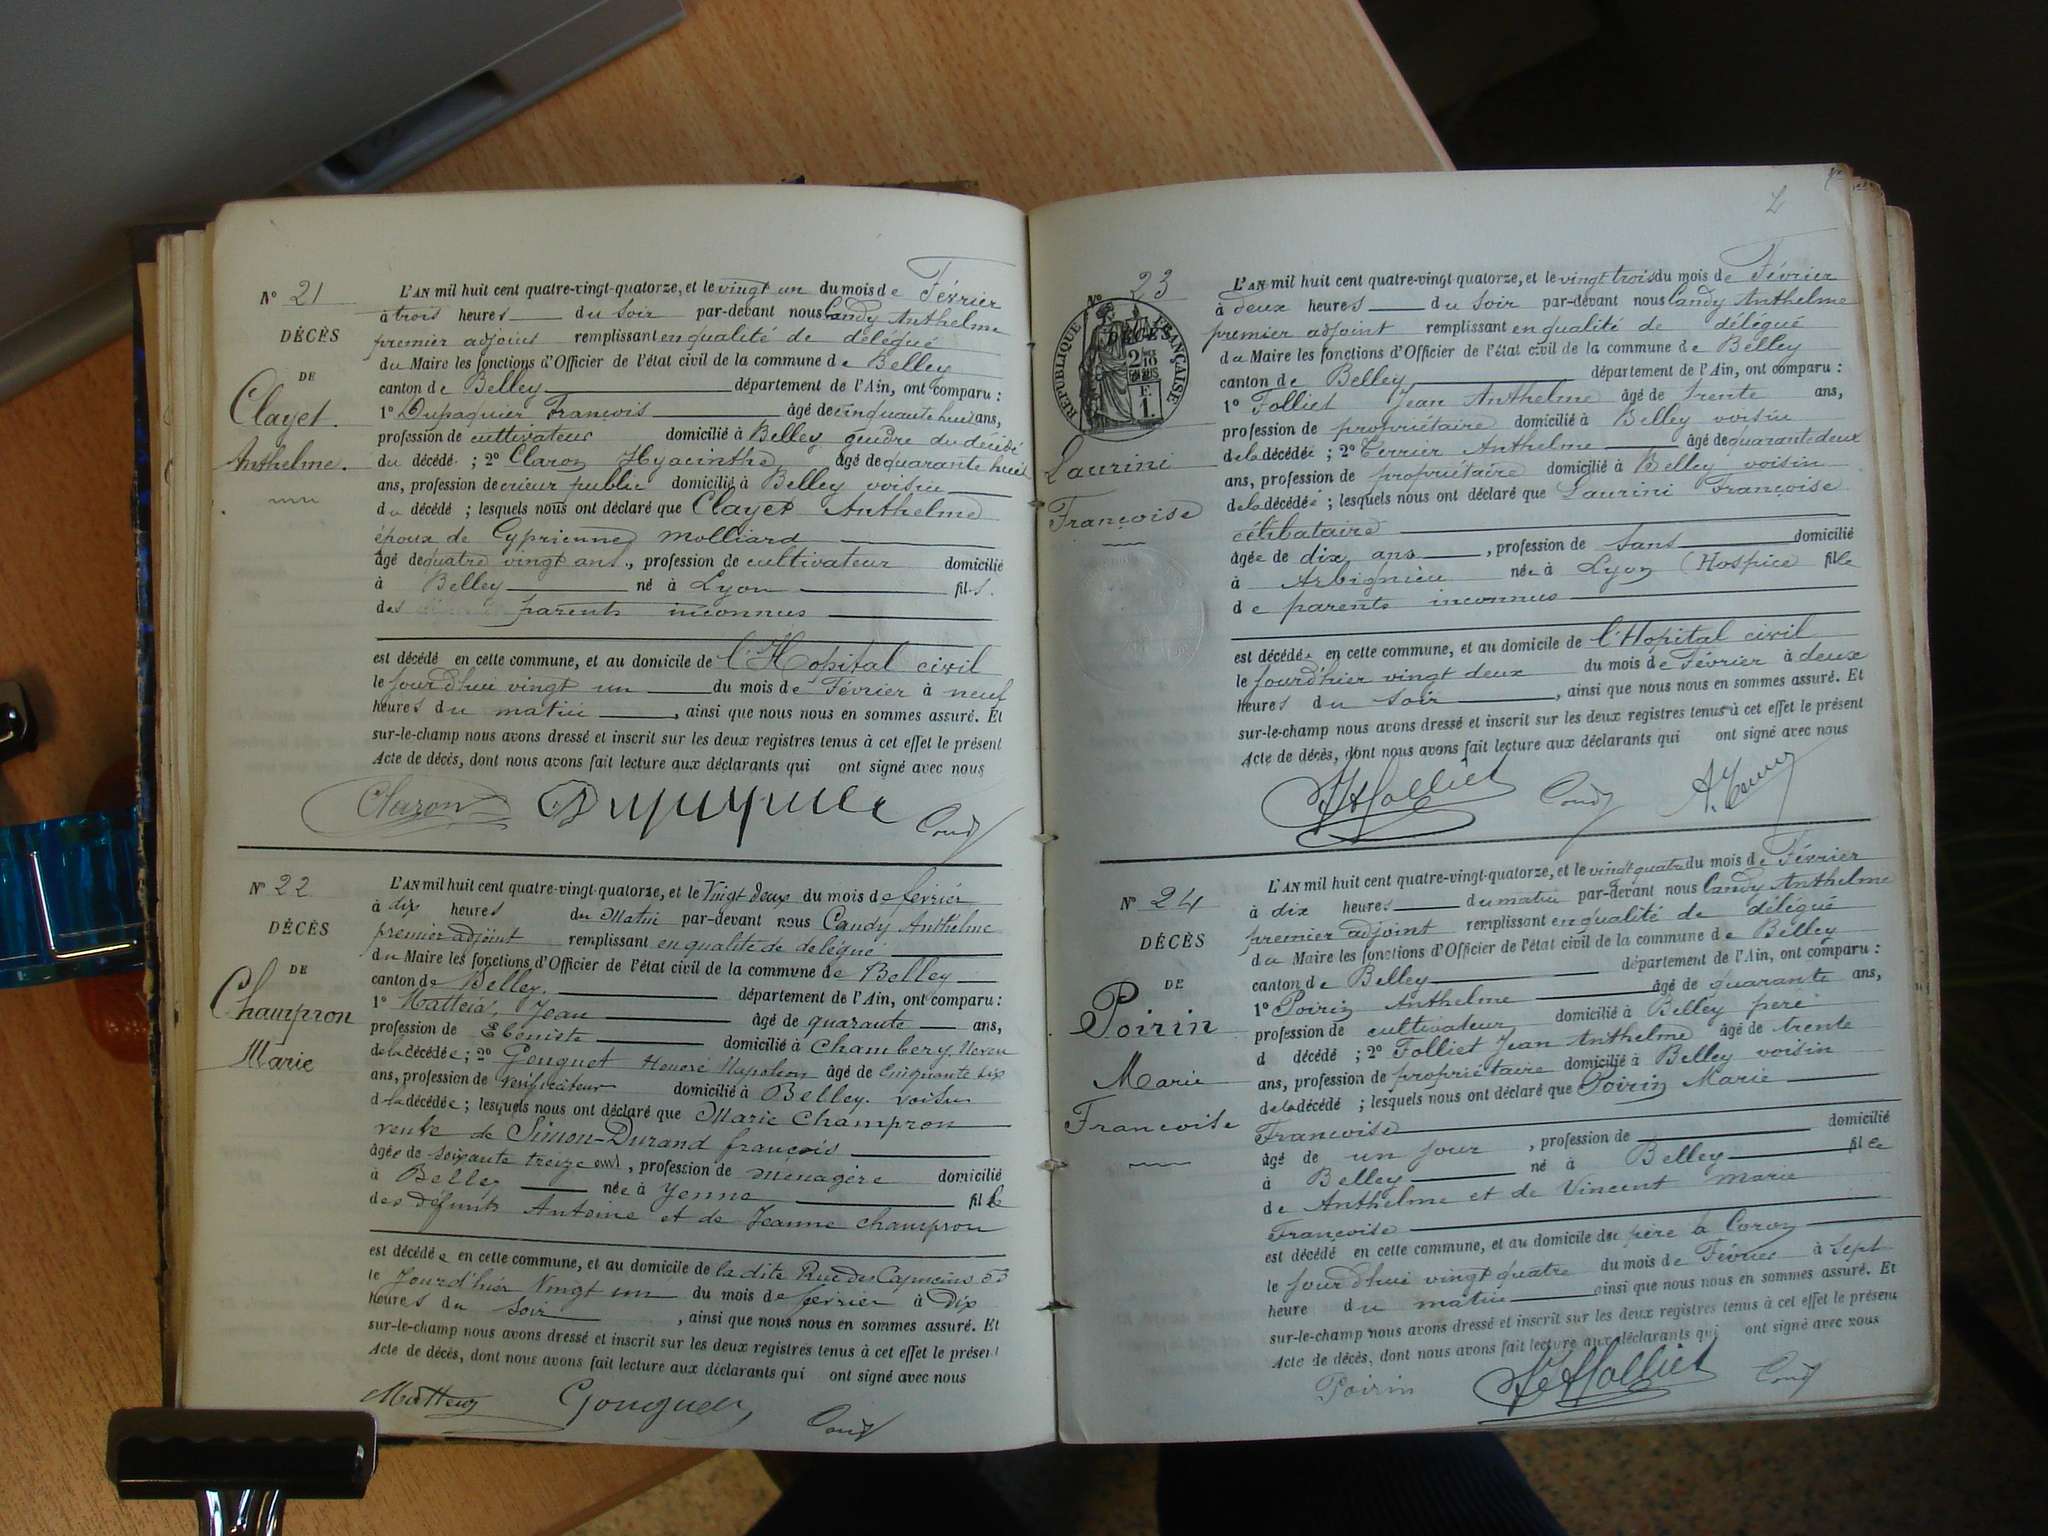 N° 21
DÉCÈS
DE
Clayet.
Anthelme.
L'AN mil huit cent quatre-vingt-quatorze, et le vingt un du mois de Février
à trois heures du soir par-devant nous Candy Anthelme
premier adjoint remplissant en qualité de délégué
du Maire les fonctions d'Officier de l'état civil de la commune de Belley
canton de Belley département de l'Ain, ont comparu :
1° Dupaquier François âgé de cinquante huit ans,
profession de cultivateur domicilié à Belley gendre du décédé
du décédé ; 2° Claron Hyacinthe âgé de quarante huit
ans, profession de crieur public domicilié à Belley voisin
du décédé ; lesquels nous ont déclaré que Clayet Anthelme
époux de Cyprienne Molliard
âgé de quatre vingt ans, profession de cultivateur domicilié
à Belley né à Lyon fils.
des parents inconnus
est décédé en cette commune, et au domicile de l'Hopital civil
le jourd'hui vingt un du mois de Février à neuf
heures du matin, ainsi que nous nous en sommes assuré. Et
sur-le-champ nous avons dressé et inscrit sur les deux registres tenus à cet effet le présent
Acte de décès, dont nous avons fait lecture aux déclarants qui ont signé avec nous
Claron Dupaquier Candy
N° 22
DÉCÈS
DE
Champron
Marie
L'AN mil huit cent quatre-vingt-quatorze, et le Vingt deux du mois de fevrier
à dix heures du Matin par-devant nous Candy Anthelme
premier adjoint remplissant en qualité de délégué
du Maire les fonctions d'Officier de l'état civil de la commune de Belley
canton de Belley. département de l'Ain, ont comparu :
1° Jean âgé de quarante ans,
profession de Ebeniste domicilié à Chambery, Neveu
de la décédée ; 2° Gouguet Honoré Napoléon âgé de Cinquante six
ans, profession de Vérificateur domicilié à Belley. Voisin
de la décédée ; lesquels nous ont déclaré que Marie Champron
veuve de Simon-Durand françois
âgée de soixante treize ans, profession de menagère domicilié
à Belley née à Yenne fille
des défunts Antoine et de Jeanne Champron
est décédée en cette commune, et au domicile de la dite Rue des Capucins 53
le Jourd'hier Vingt un du mois de fevrier à Dix
heures du soir, ainsi que nous nous en sommes assuré. Et
sur-le-champ nous avons dressé et inscrit sur les deux registres tenus à cet effet le présent
Acte de décès, dont nous avons fait lecture aux déclarants qui ont signé avec nous
Gouguet Candy
4
N° 23
DÉCÈS
RÉPUBLIQUE FRANÇAISE
2/10
E
1.
Laurini
Françoise
L'AN mil huit cent quatre-vingt quatorze, et le vingt trois du mois de Février
à deux heures du soir par-devant nous Candy Anthelme
premier adjoint remplissant en qualité de délégué
du Maire les fonctions d'Officier de l'état civil de la commune de Belley
canton de Belley département de l'Ain, ont comparu :
1° Folliet Jean Anthelme âgé de trente ans,
profession de propriétaire domicilié à Belley voisin
de la décédée ; 2° Terrier Anthelme âgé de quarante deux
ans, profession de propriétaire domicilié à Belley voisin
de la décédée ; lesquels nous ont déclaré que Laurini Françoise
célibataire
âgée de dix ans, profession de sans domicilié
à Arbignieu née à Lyon (Hospice fille
de parents inconnus
est décédée en cette commune, et au domicile de l'Hopital civil
le jourd'hier vingt deux du mois de Février à deux
heures du soir, ainsi que nous nous en sommes assuré. Et
sur-le-champ nous avons dressé et inscrit sur les deux registres tenus à cet effet le présent
Acte de décès, dont nous avons fait lecture aux déclarants qui ont signé avec nous
Folliet Candy
N° 24
DÉCÈS
DE
Poirin
Marie
Francoise
L'AN mil huit cent quatre-vingt-quatorze, et le vingt quatre du mois de Février
à dix heures du matin par-devant nous Candy Anthelme
premier adjoint remplissant en qualité de délégué
du Maire les fonctions d'Officier de l'état civil de la commune de Belley
canton de Belley département de l'Ain, ont comparu :
1° Poirin Anthelme âgé de quarante ans,
profession de cultivateur domicilié à Belley père
d décédé ; 2° Folliet Jean Anthelme âgé de trente
ans, profession de propriétaire domicilié à Belley voisin
de la décédé ; lesquels nous ont déclaré que Poirin Marie
Francoise
âgé de un jour, profession de domicilié
à Belley né à Belley fille
de Anthelme et de Vincent Marie
Françoise
est décédé en cette commune, et au domicile du père à Coron
le jourd'hui vingt quatre du mois de Février à sept
heure du matin ainsi que nous nous en sommes assuré. Et
sur-le-champ nous avons dressé et inscrit sur les deux registres tenus à cet effet le présent
Acte de décès, dont nous avons fait lecture aux déclarants qui ont signé avec nous
Poirin Folliet Candy